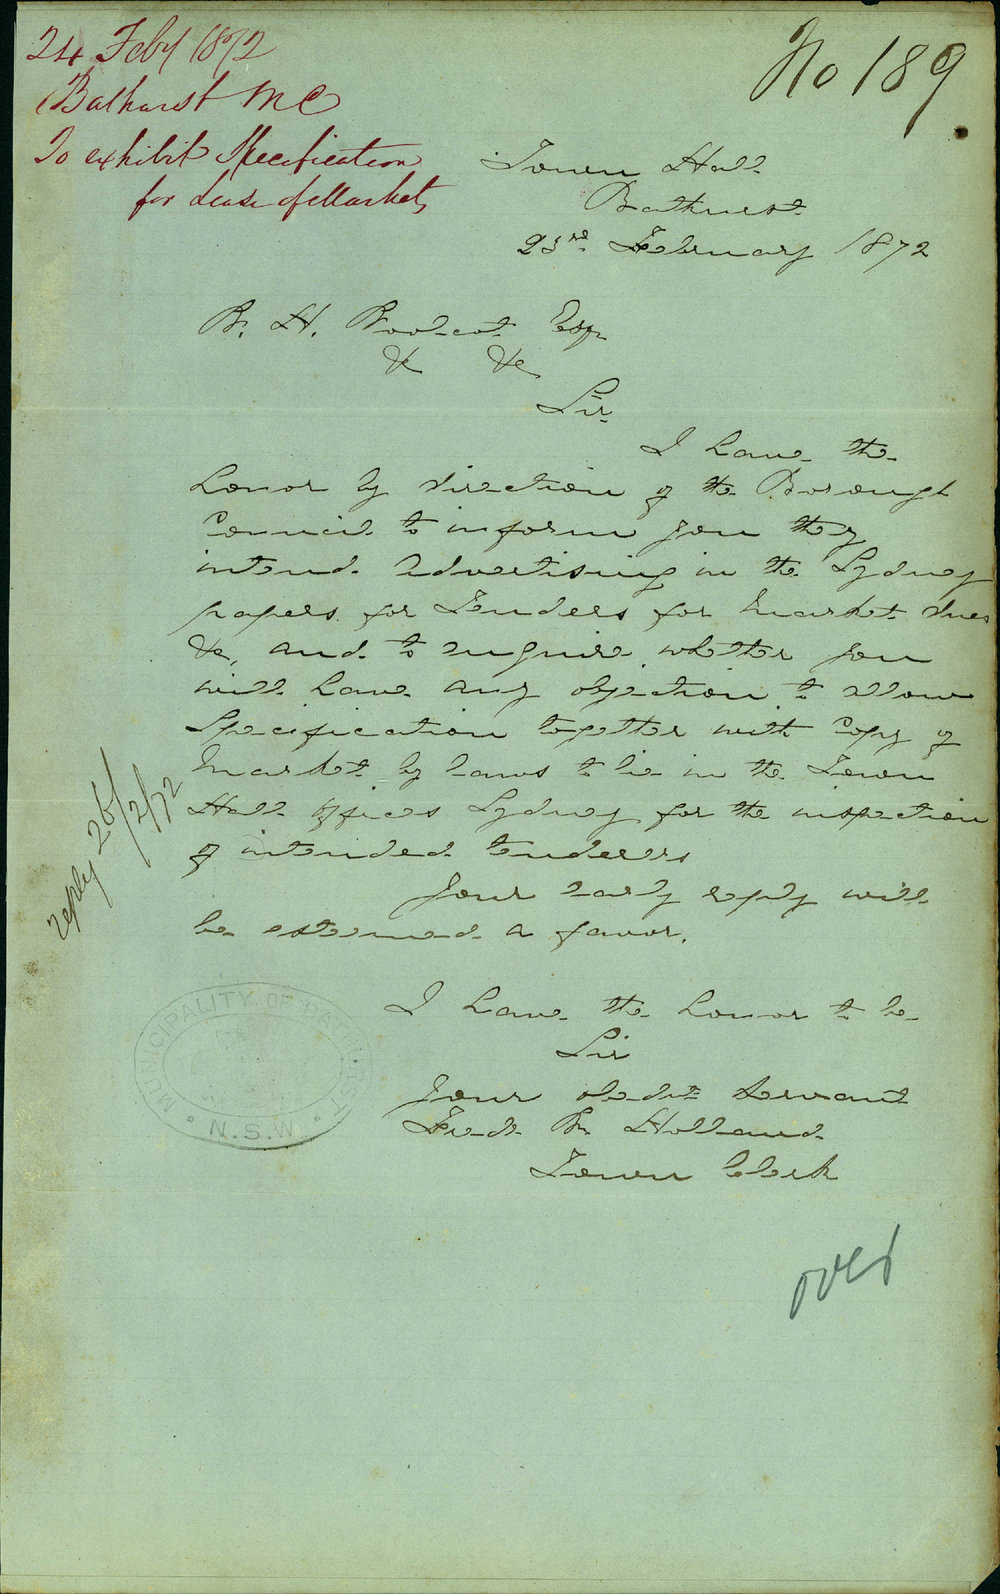 24 Feby 1872
Bathurst M C
To exhibit Specification
for Lease of Markets
No 189.
Town Hall
Bathurst
23rd February 1872
Esq
&c &c
Sir
I have the
honor by direction of the Borough
Council to inform you they
intend advertising in the Sydney
papers for Tenders for Market dues
&c, and to enquire whether you
will have any objection to allow
Specification together with Copy of
Market by laws to lie in the Town
Hall Offices Sydney for the inspection
of intended tenderers
Your early reply will
be esteemed a favor.
reply 26/2/72
I have the honor to be
Sir
Your obedt Servant
Fredk Holland
Town Clerk
MUNICIPALITY OF BATHURST
N.S.W.
over